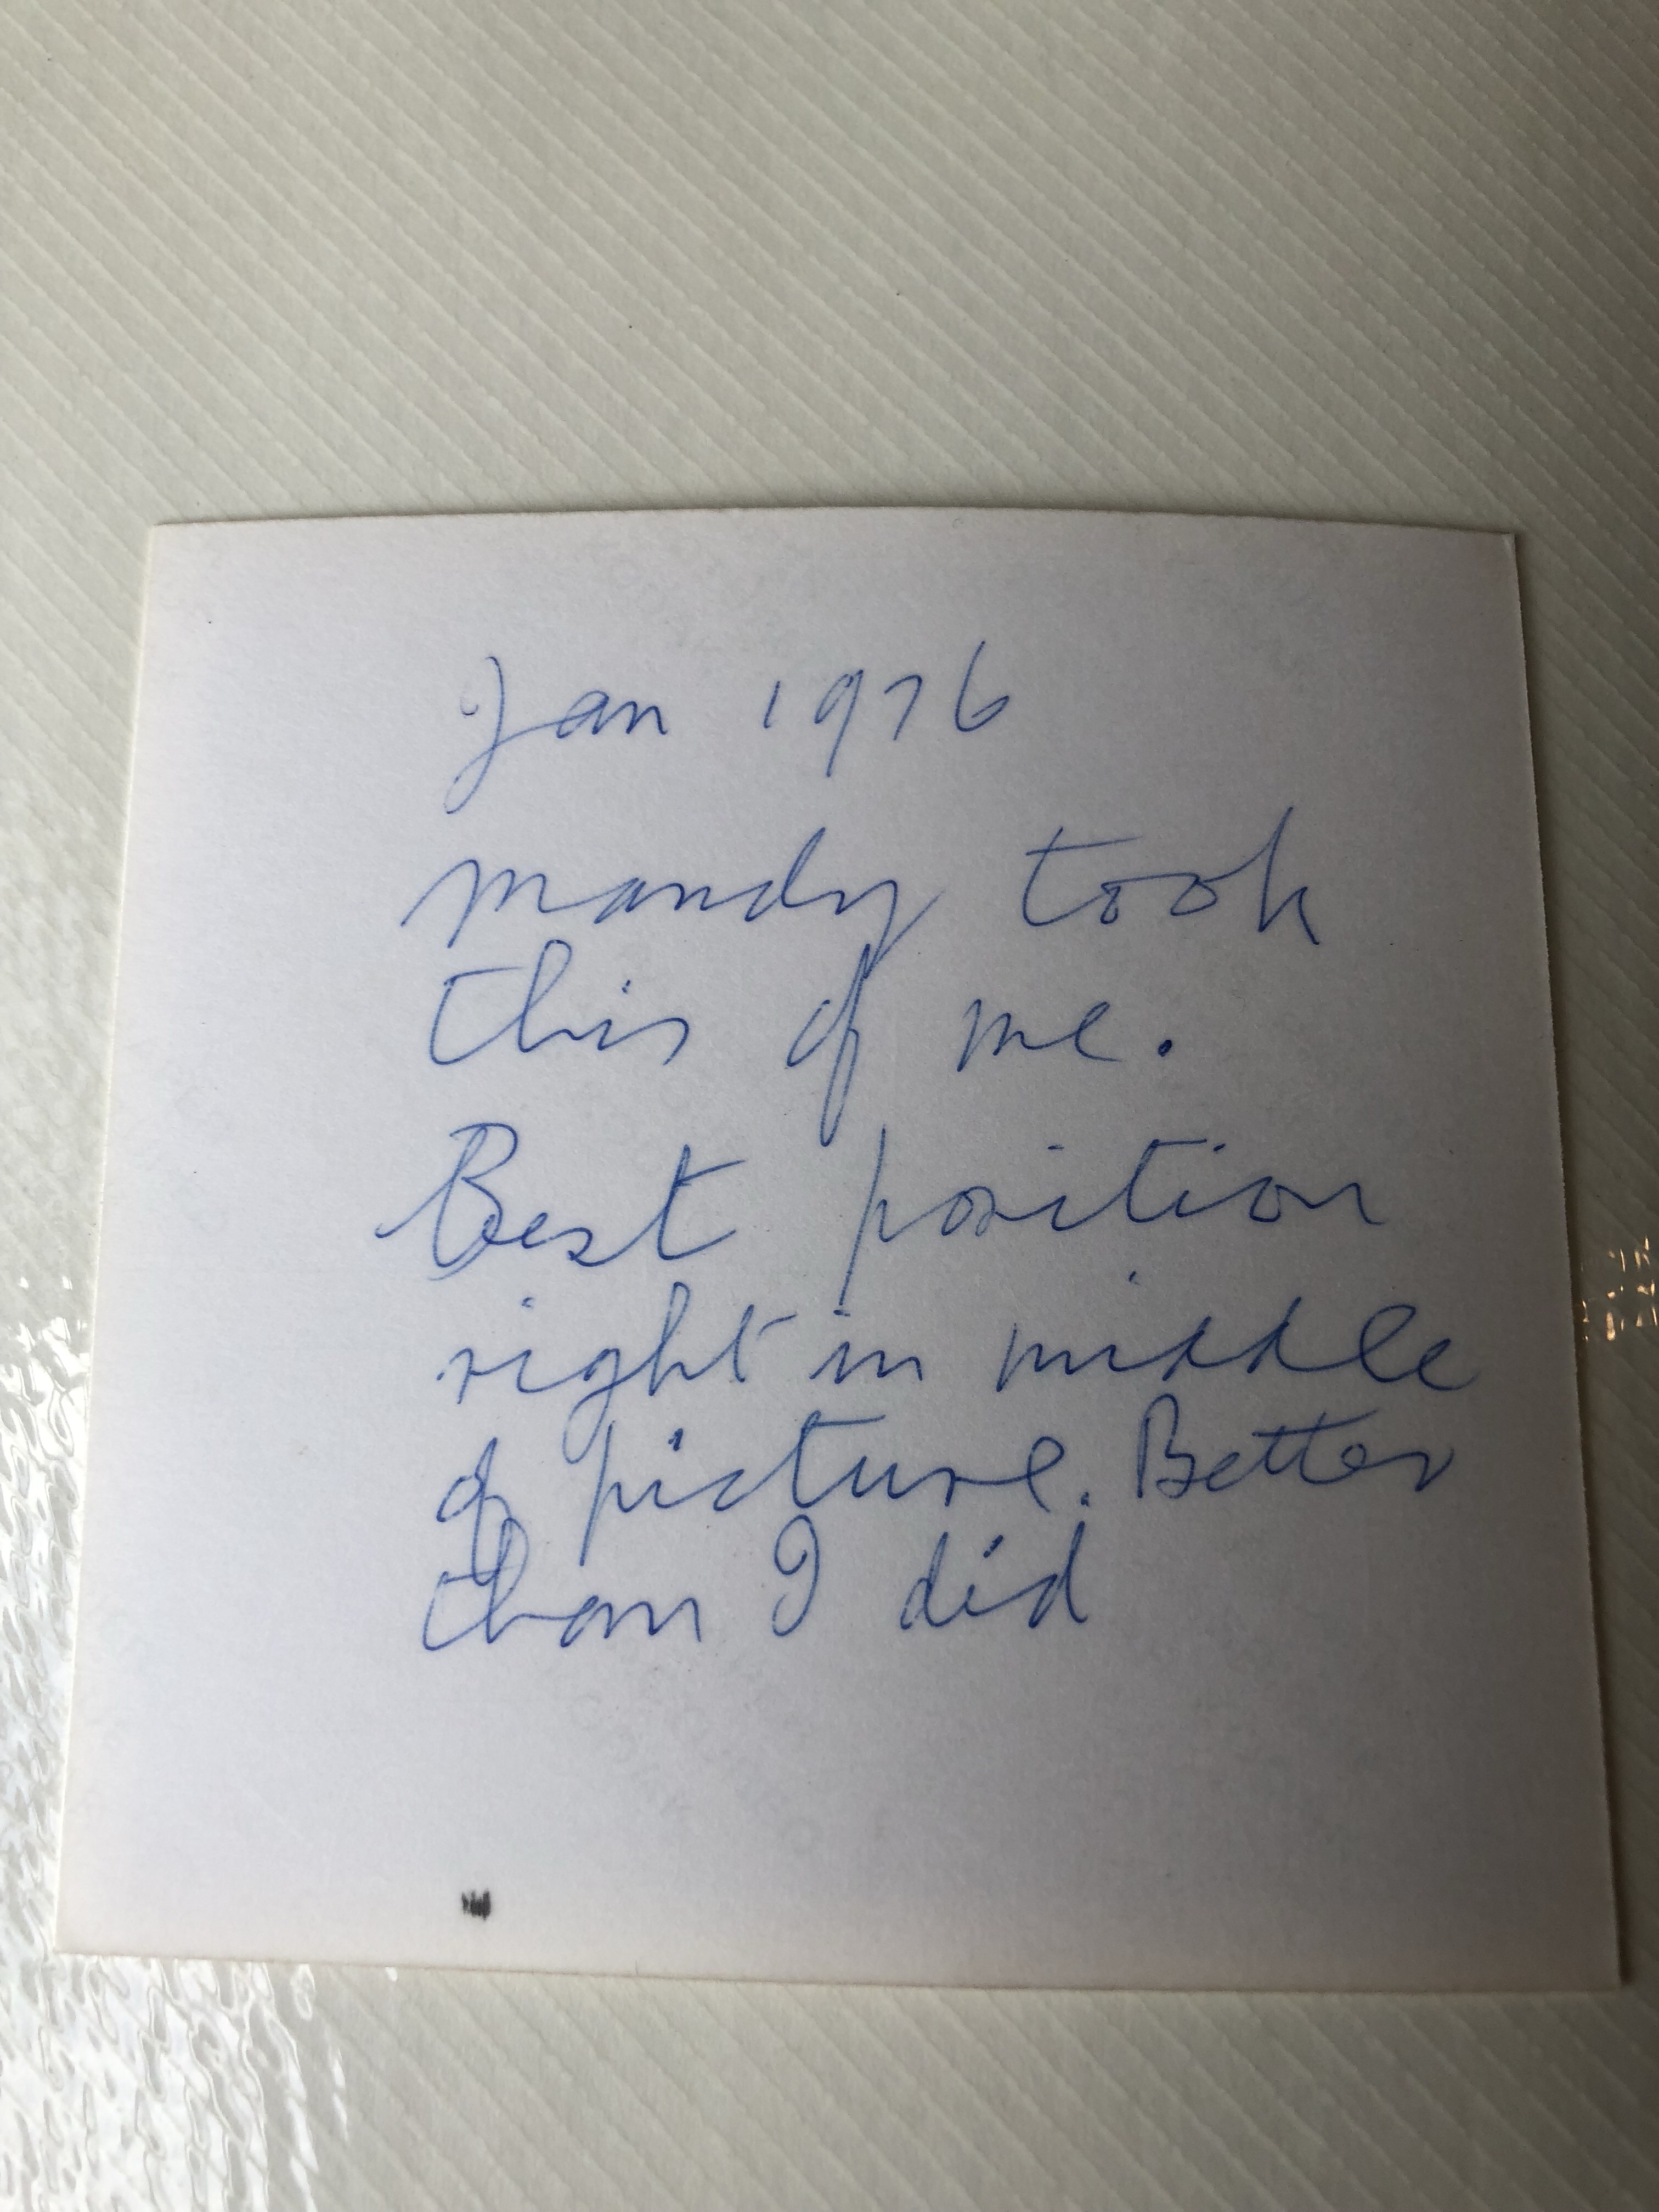 Jan 1976
Mandy took
this of me.
Best position
right in middle
of picture. Better
than I did